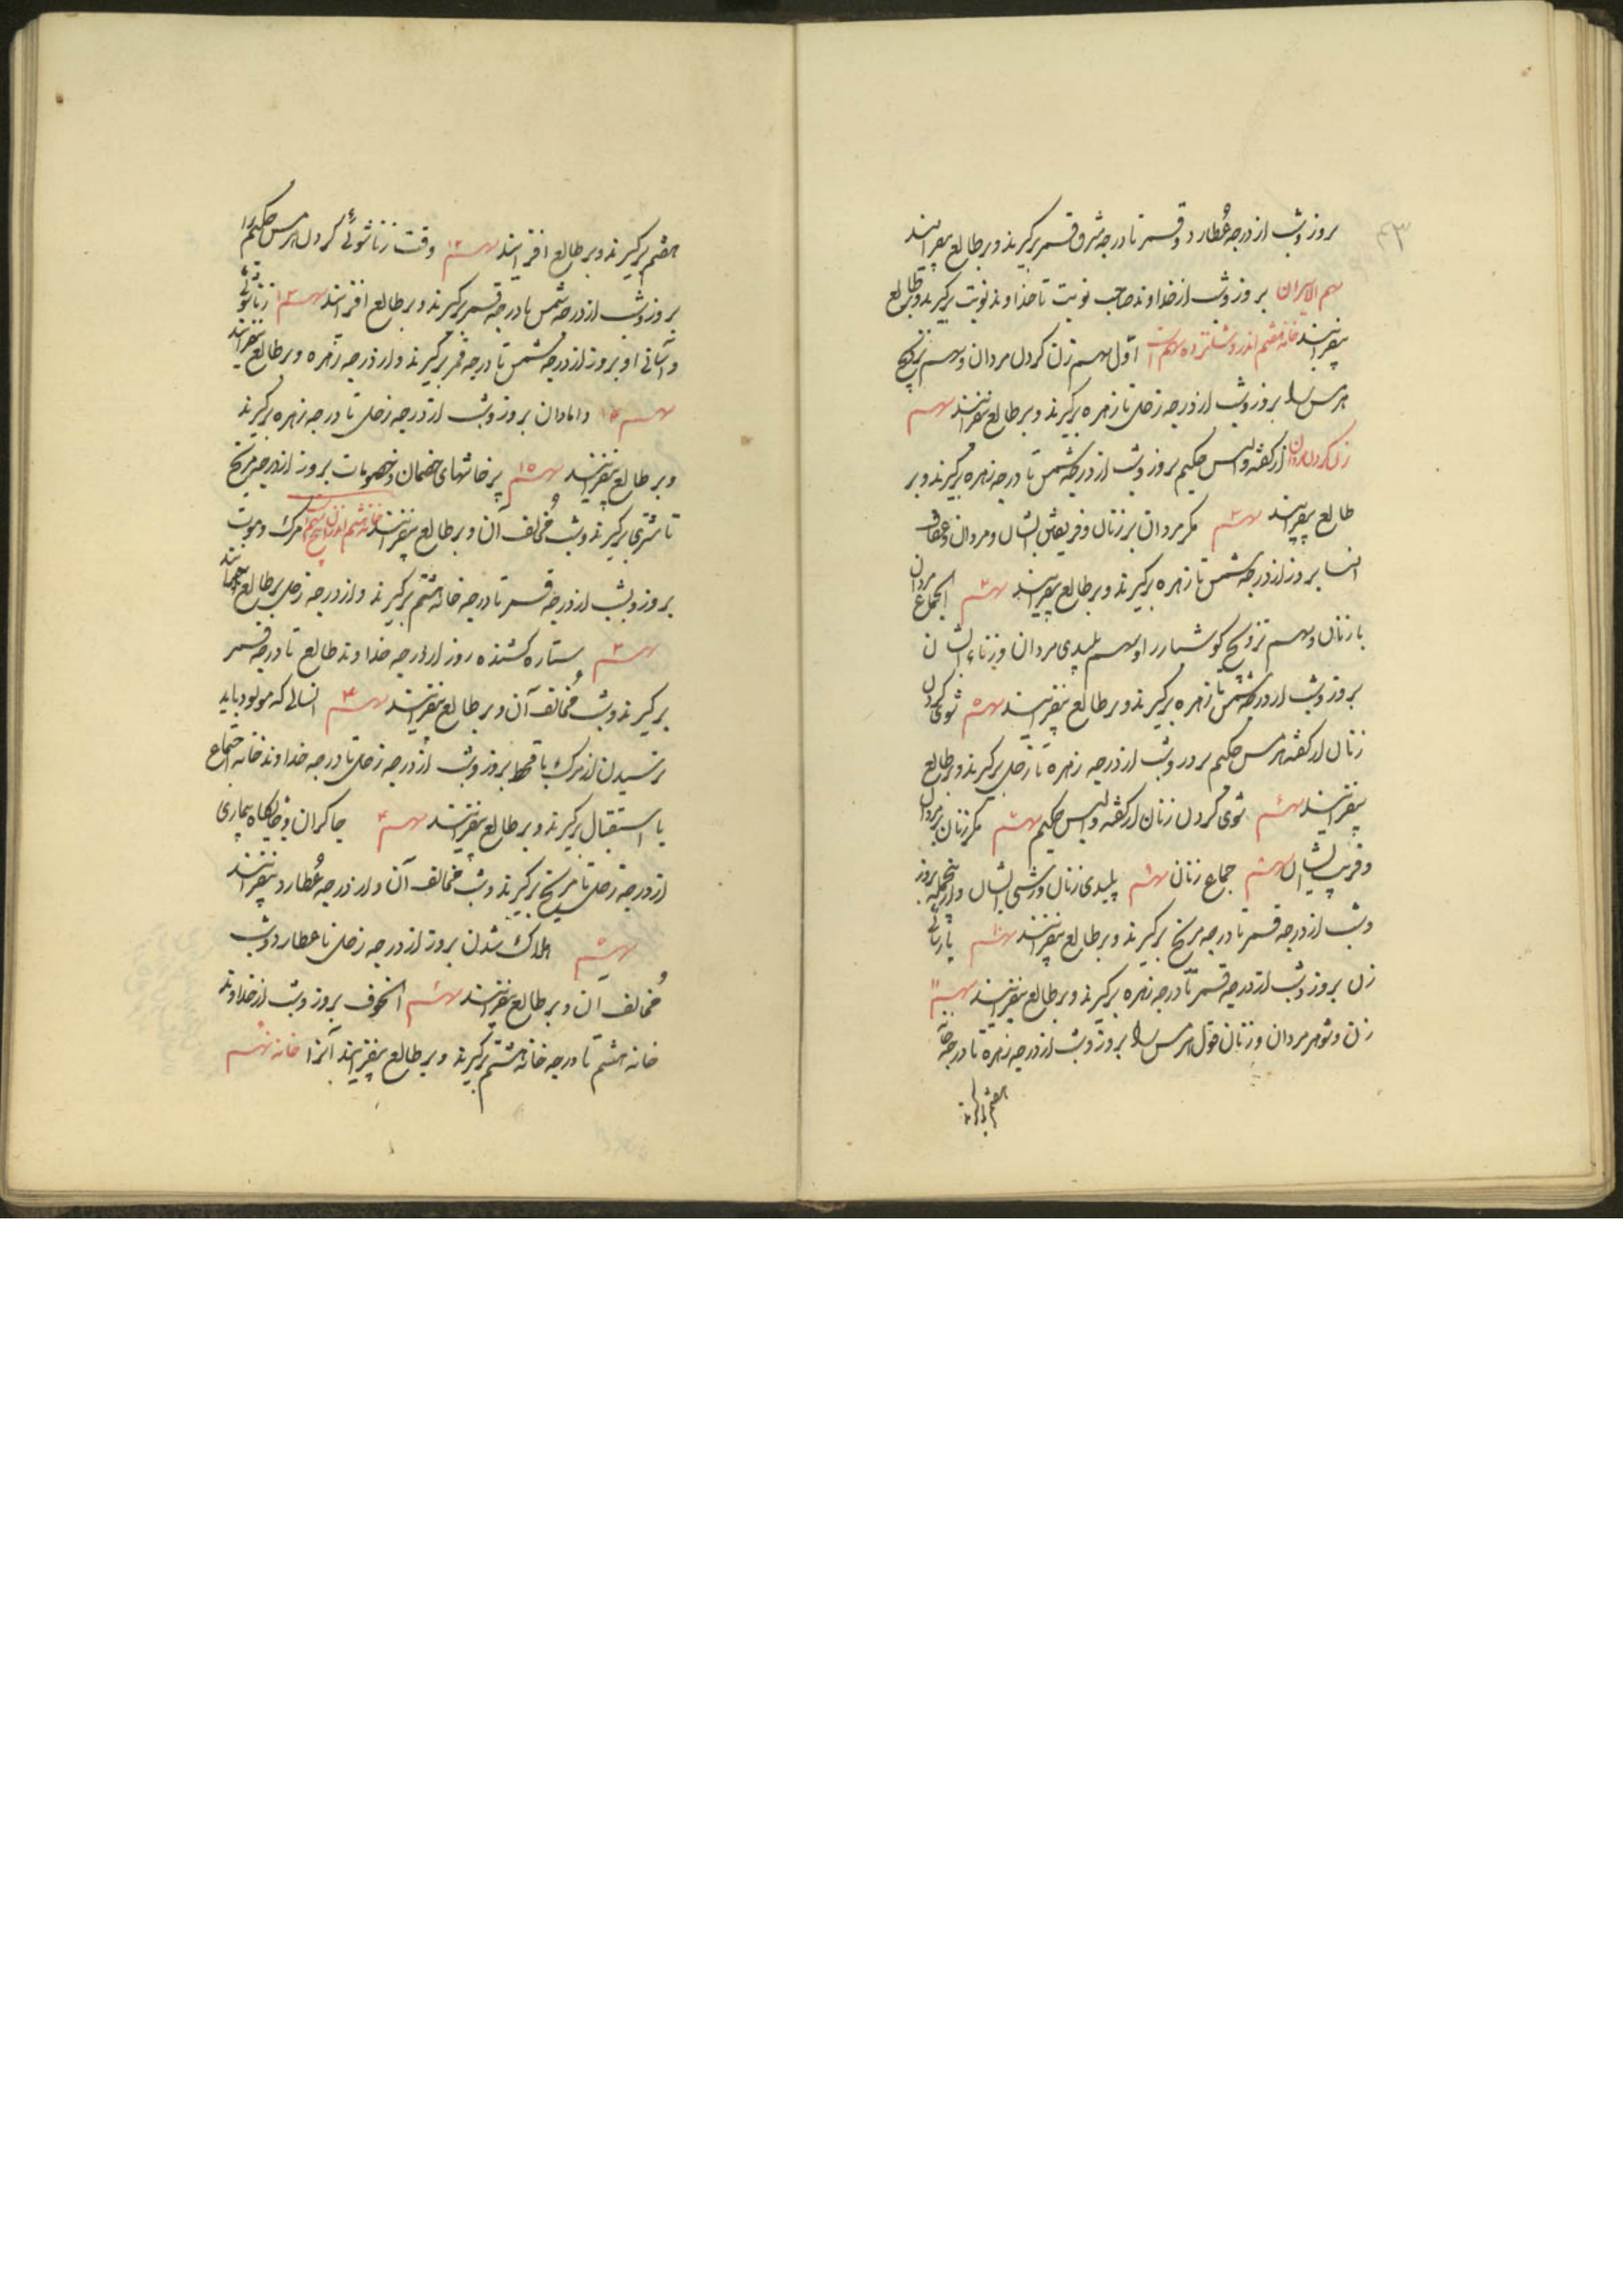 ۴۳
بروز وشب از درجه عُطارد و قمر تا درجه شرق قمر برکیرند و بر طالع بیفزایند
سهم الاسیران بروز وشب از خداوند صاحب نوبت تا خداوند نوبت برکیرند و بر طالع
بیفزایند خانه هفتم اندر و شانزده سهم است اوّل سهم زن کردن مردان و سهم تزویج
هرمس را بروز وشب از درجه زحل تا زهره برکیرند و بر طالع بیفزایند سهم
زن کردن مردان از کفته والیس حکیم بروز وشب از درجه شمس تا درجه زهره برکیرند و بر
طالع بیفزایند سهم ۳ مکر مردان بر زنان و فریفتن ایشان و مردان و
النسا بروز از درجه شمس تا زهره برکیرند و بر طالع بیفزایند سهم ۴ اجماع مردان
با زنان و سهم تزویج کوشیار را و سهم پلیدی مردان و زناء ایشان
بروز وشب از درجه شمس تا زهره برکیرند و بر طالع بیفزایند سهم ۵ شوی کردن
زنان از کفته هرمس حکیم بروز وشب از درجه زهره تا زحل برکیرند و بر طالع
بیفزایند سهم ۶ شوی کردن زنان از کفته والیس حکیم سهم ۷ مکر زنان بر مردان
و فریب ایشان سهم ۸ جماع زنان سهم ۹ پلیدی زنان و زشتی ایشان و این جمله بروز
وشب از درجه قمر تا درجه مریخ برکیرند و بر طالع بیفزایند سهم ۱۰ پارسائی
زن بروز وشب از درجه قمر تا درجه زهره برکیرند و بر طالع بیفزایند سهم ۱۱
زن و شوهر مردان و زنان قول هرمس را بروز وشب از درجه زهره تا درجه خانه
هفتم برکیرند
هفتم برکیرند و بر طالع افزایند سهم ۱۲ وقت زناشوئی کردن هرمس حکیم را
بروز وشب از درجه شمس تا درجه قمر برکیرند و بر طالع افزایند سهم ۱۳ زناشوئی
و آسانی او بروز از درجه شمس تا درجه قمر برکیرند و از درجه زهره و بر طالع بیفزایند
سهم ۱۴ دامادان بروز وشب از درجه زحل تا درجه زهره برکیرند
و بر طالع بیفزایند سهم ۱۵ پرخاشهای خصمان و خصومات بروز از درجه مریخ
تا مشتری برکیرند وشب مُخالف آن و بر طالع بیفزایند خانه هشتم اندران پنج سهم است مرک و موت
بروز وشب از درجه قمر تا درجه خانه هشتم برکیرند و از درجه زحل بر طالع
سهم ۲ ستاره کشنده روز از درجه خداوند طالع تا درجه قمر
برکیرند وشب مُخالف آن و بر طالع بیفزایند سهم ۳ انسالی که مولود باید
ترسیدن از مرک یا قحط بروز وشب از درجه زحل تا درجه خداوند خانه اجتماع
یا استقبال برکیرند و بر طالع بیفزایند سهم ۴ چاکران و جایکاه بیماری
از درجه زحل تا مریخ برکیرند وشب مُخالف آن و از درجه عُطارد بیفزایند
سهم ۵ هلاک شدن بروز از درجه زحل تا عطارد وشب
مُخالف آن و بر طالع بیفزایند سهم ۶ الخوف بروز وشب از خداوند
خانه هشتم تا درجه خانه هشتم برکیرند و بر طالع بیفزایند آنرا خانه نهم